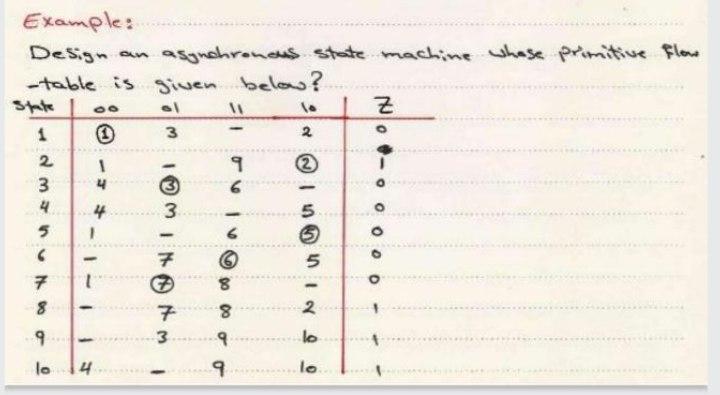 Example:
Design an asynchronous state machine whose primitive flow
-table is given below?
State 00 01 11 10 Z
1 1 3 - 2 0
2 1 - 9 2 1
3 4 3 6 - 0
4 4 3 - 5 0
5 1 - 6 5 0
6 - 7 6 5 0
7 1 7 8 - 0
8 - 7 8 2 1
9 - 3 9 10 1
10 4 - 9 10 1